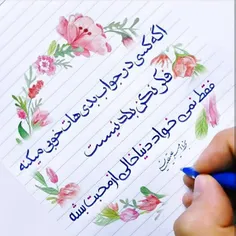 اگه کسی در جواب بدی هات خوبی میکنه
فکر نکن بلد نیست
فقط نمی خواد دنیا خالی از محبت بشه